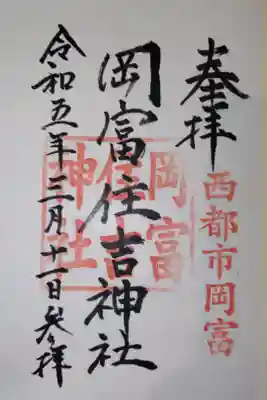 奉拝
西都市岡富
岡富住吉神社
岡富
住吉
神社
令和五年三月十一日参拝